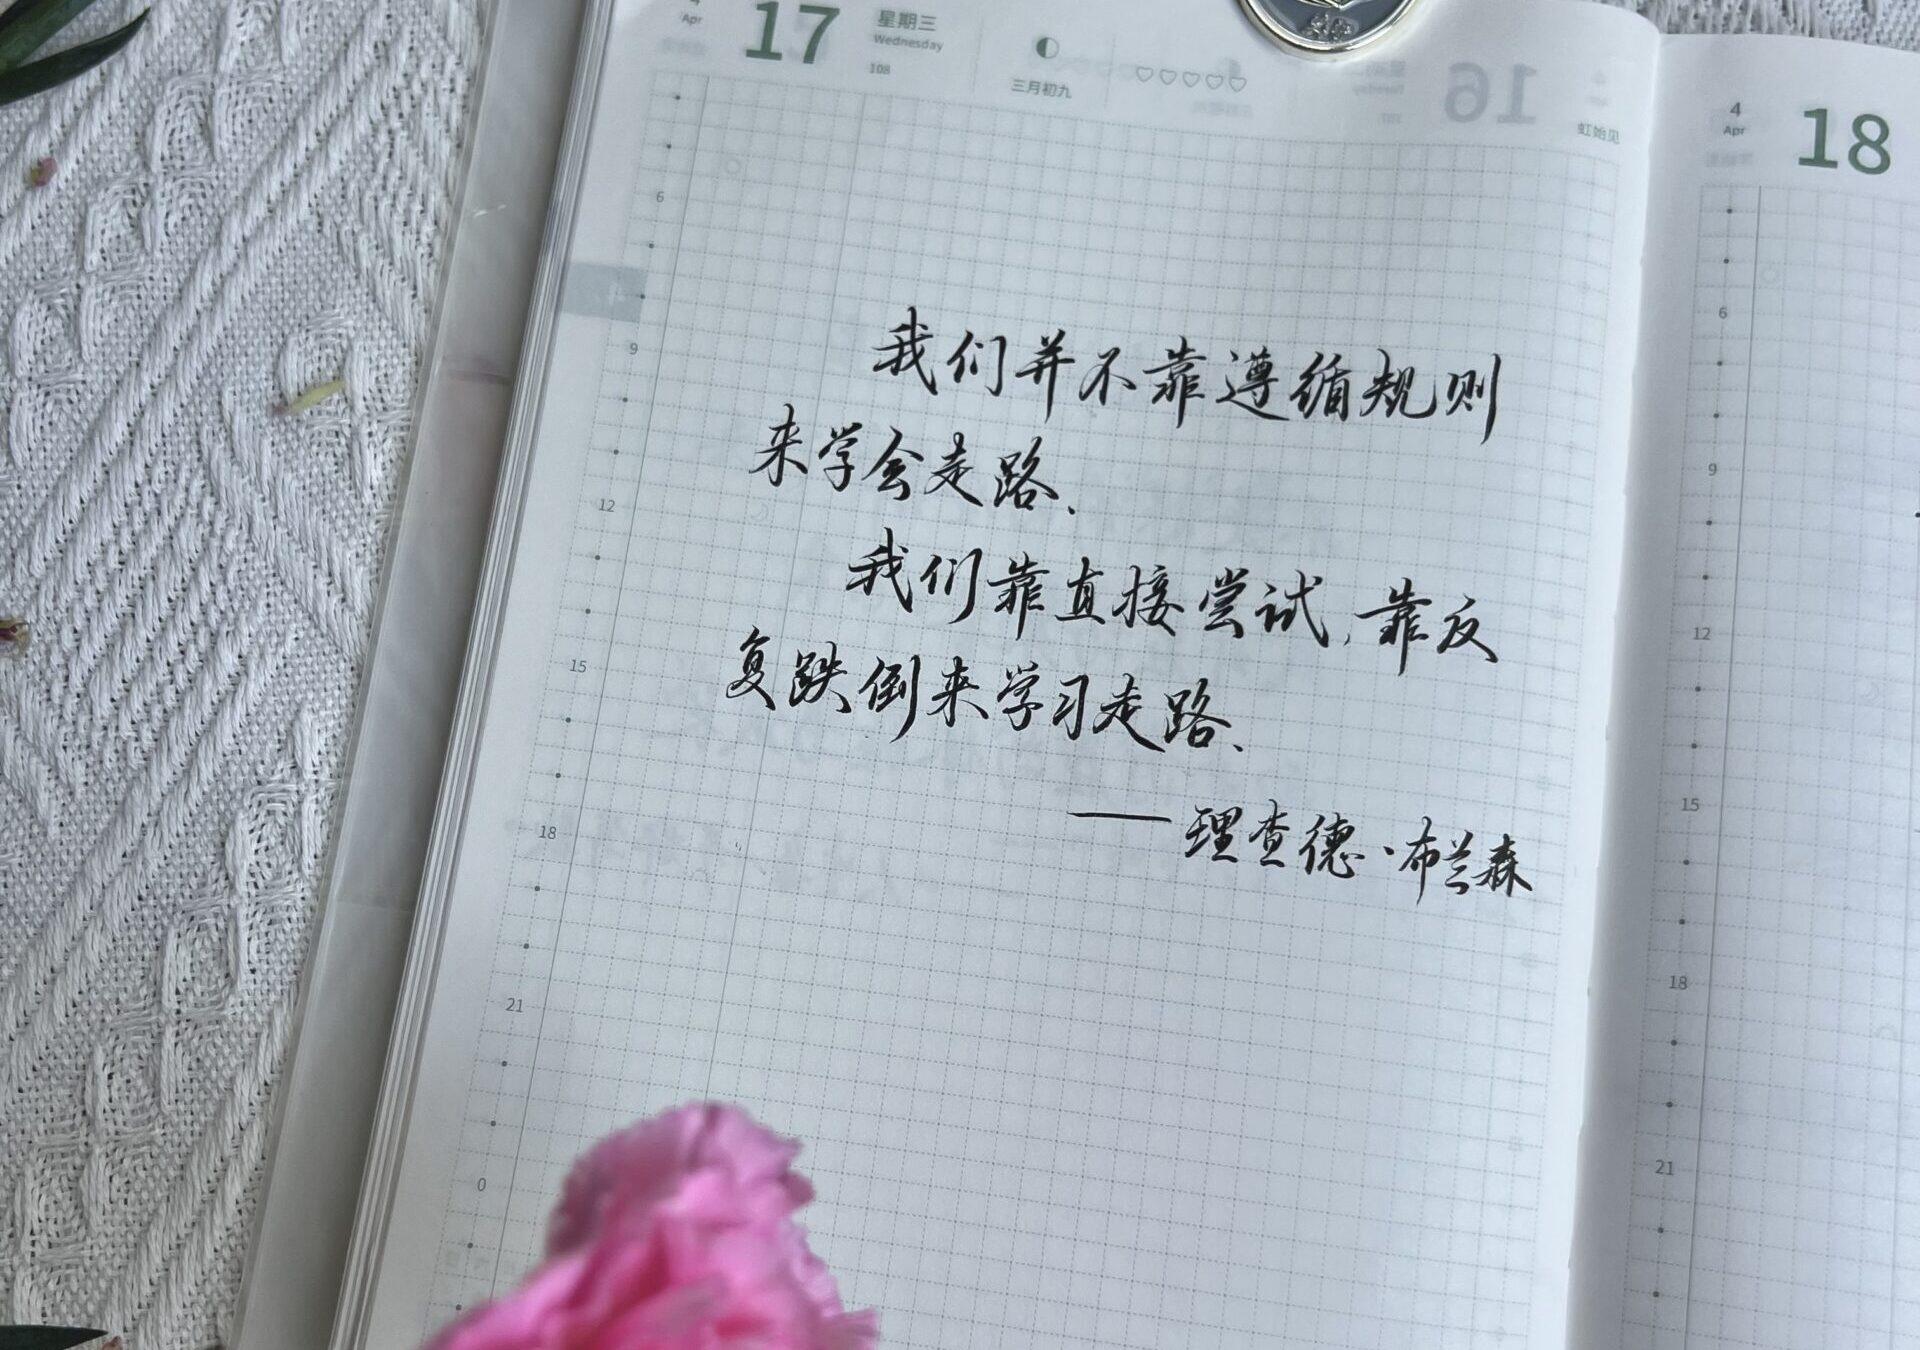 4
Apr
17
星期三
Wednesday
108
三月初九
虹始见
6
9
12
15
18
21
0
我们并不靠遵循规则
来学会走路、
我们靠直接尝试,靠反
复跌倒来学习走路、
——理查德·布兰森
4
Apr
18
6
9
12
15
18
21